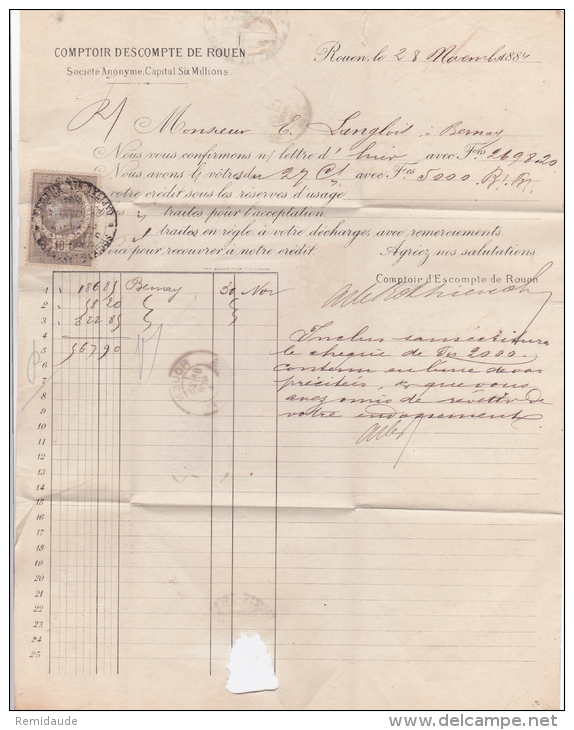 COMPTOIR D'ESCOMPTE DE ROUEN
Société Anonyme, Capital Six Millions
Rouen, le 28 Novembre 1884
Monsieur C. Langlois, à Bernay
Nous vous confirmons n/ lettre d'hier avec Fcs 2698.20
Nous avons la vôtre du 27 Ct avec Fcs 5000
votre crédit sous les réserves d'usage
traites pour l'acceptation
traites en règle à votre décharge, avec remerciements
Voici pour recouvrer à notre crédit. Agréez nos salutations
Comptoir d'Escompte de Rouen
1 186 85 Bernay 30 Nov
2 58 20 "
3 322 85 "
4
5 567 90
6
7
8
9
10
11
12
13
14
15
16
17
18
19
20
21
22
23
24
25
Inclus
le chèque de Fcs 2000
contenu en l'une de vos
précitées, & que vous
avez omis de revêtir de
votre endossement
ROUEN
Remidaude
www.delcampe.net